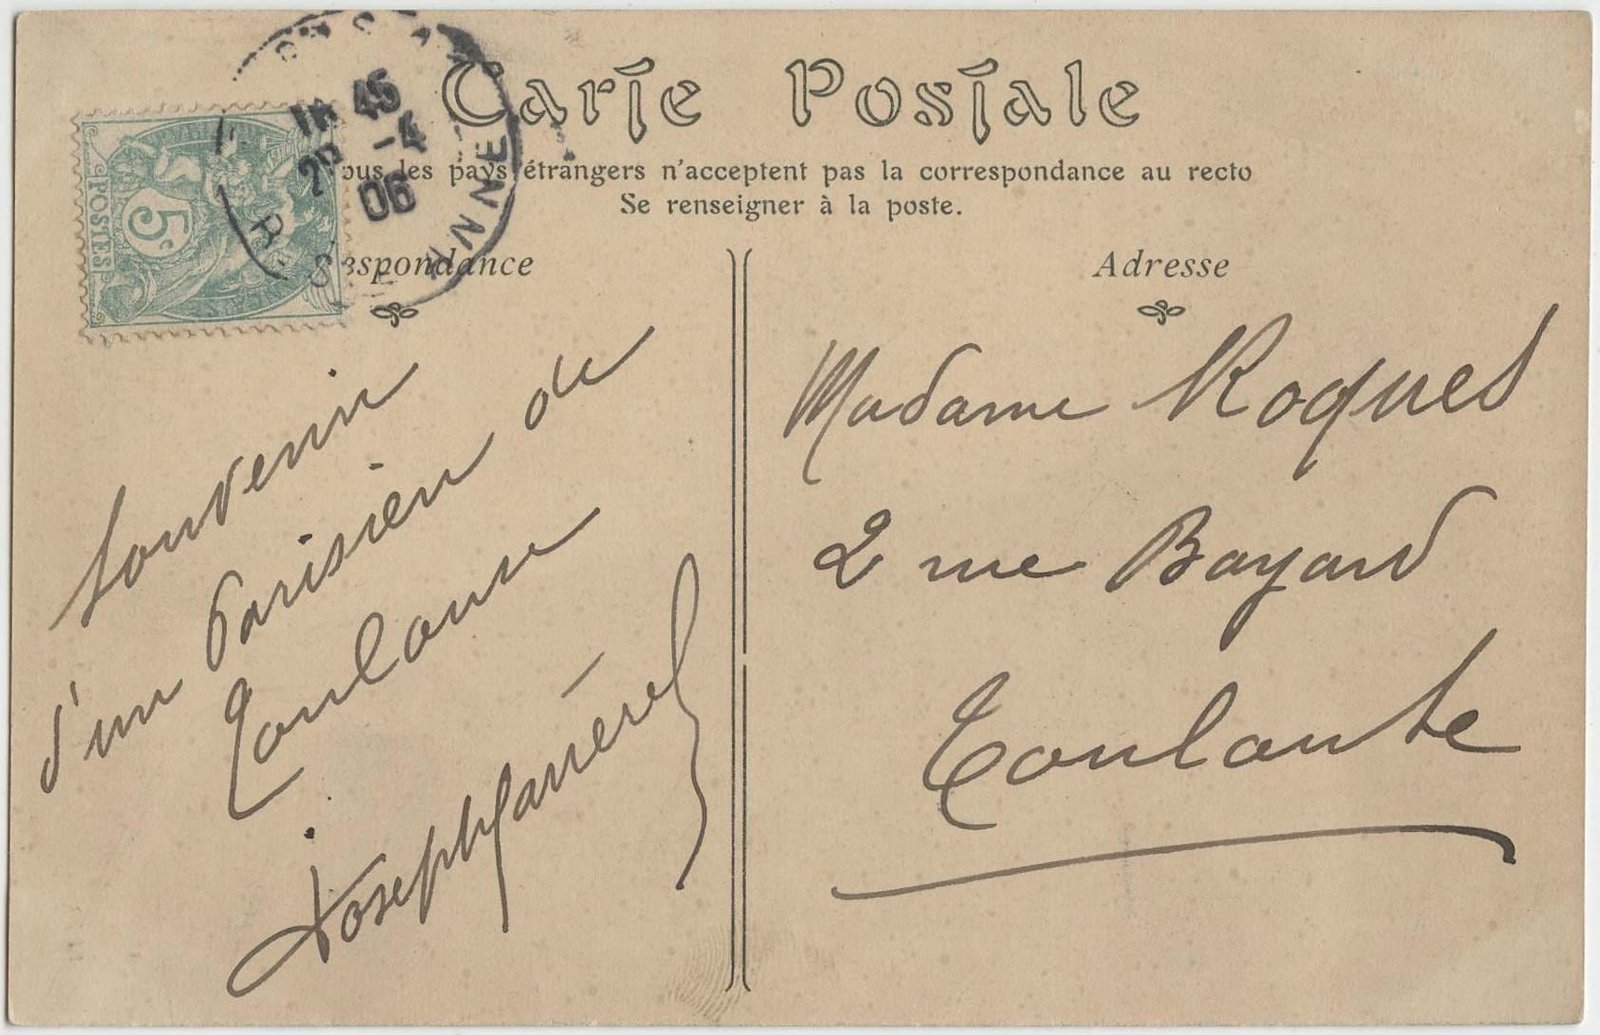 Carte Postale
ous les pays étrangers n'acceptent pas la correspondance au recto
Se renseigner à la poste.
espondance
Adresse
POSTES
5c
45
-4
06
Souvenir
d'un Parisien de
Toulouse
Joseph
Madame Roques
2 rue Bayard
Toulouse